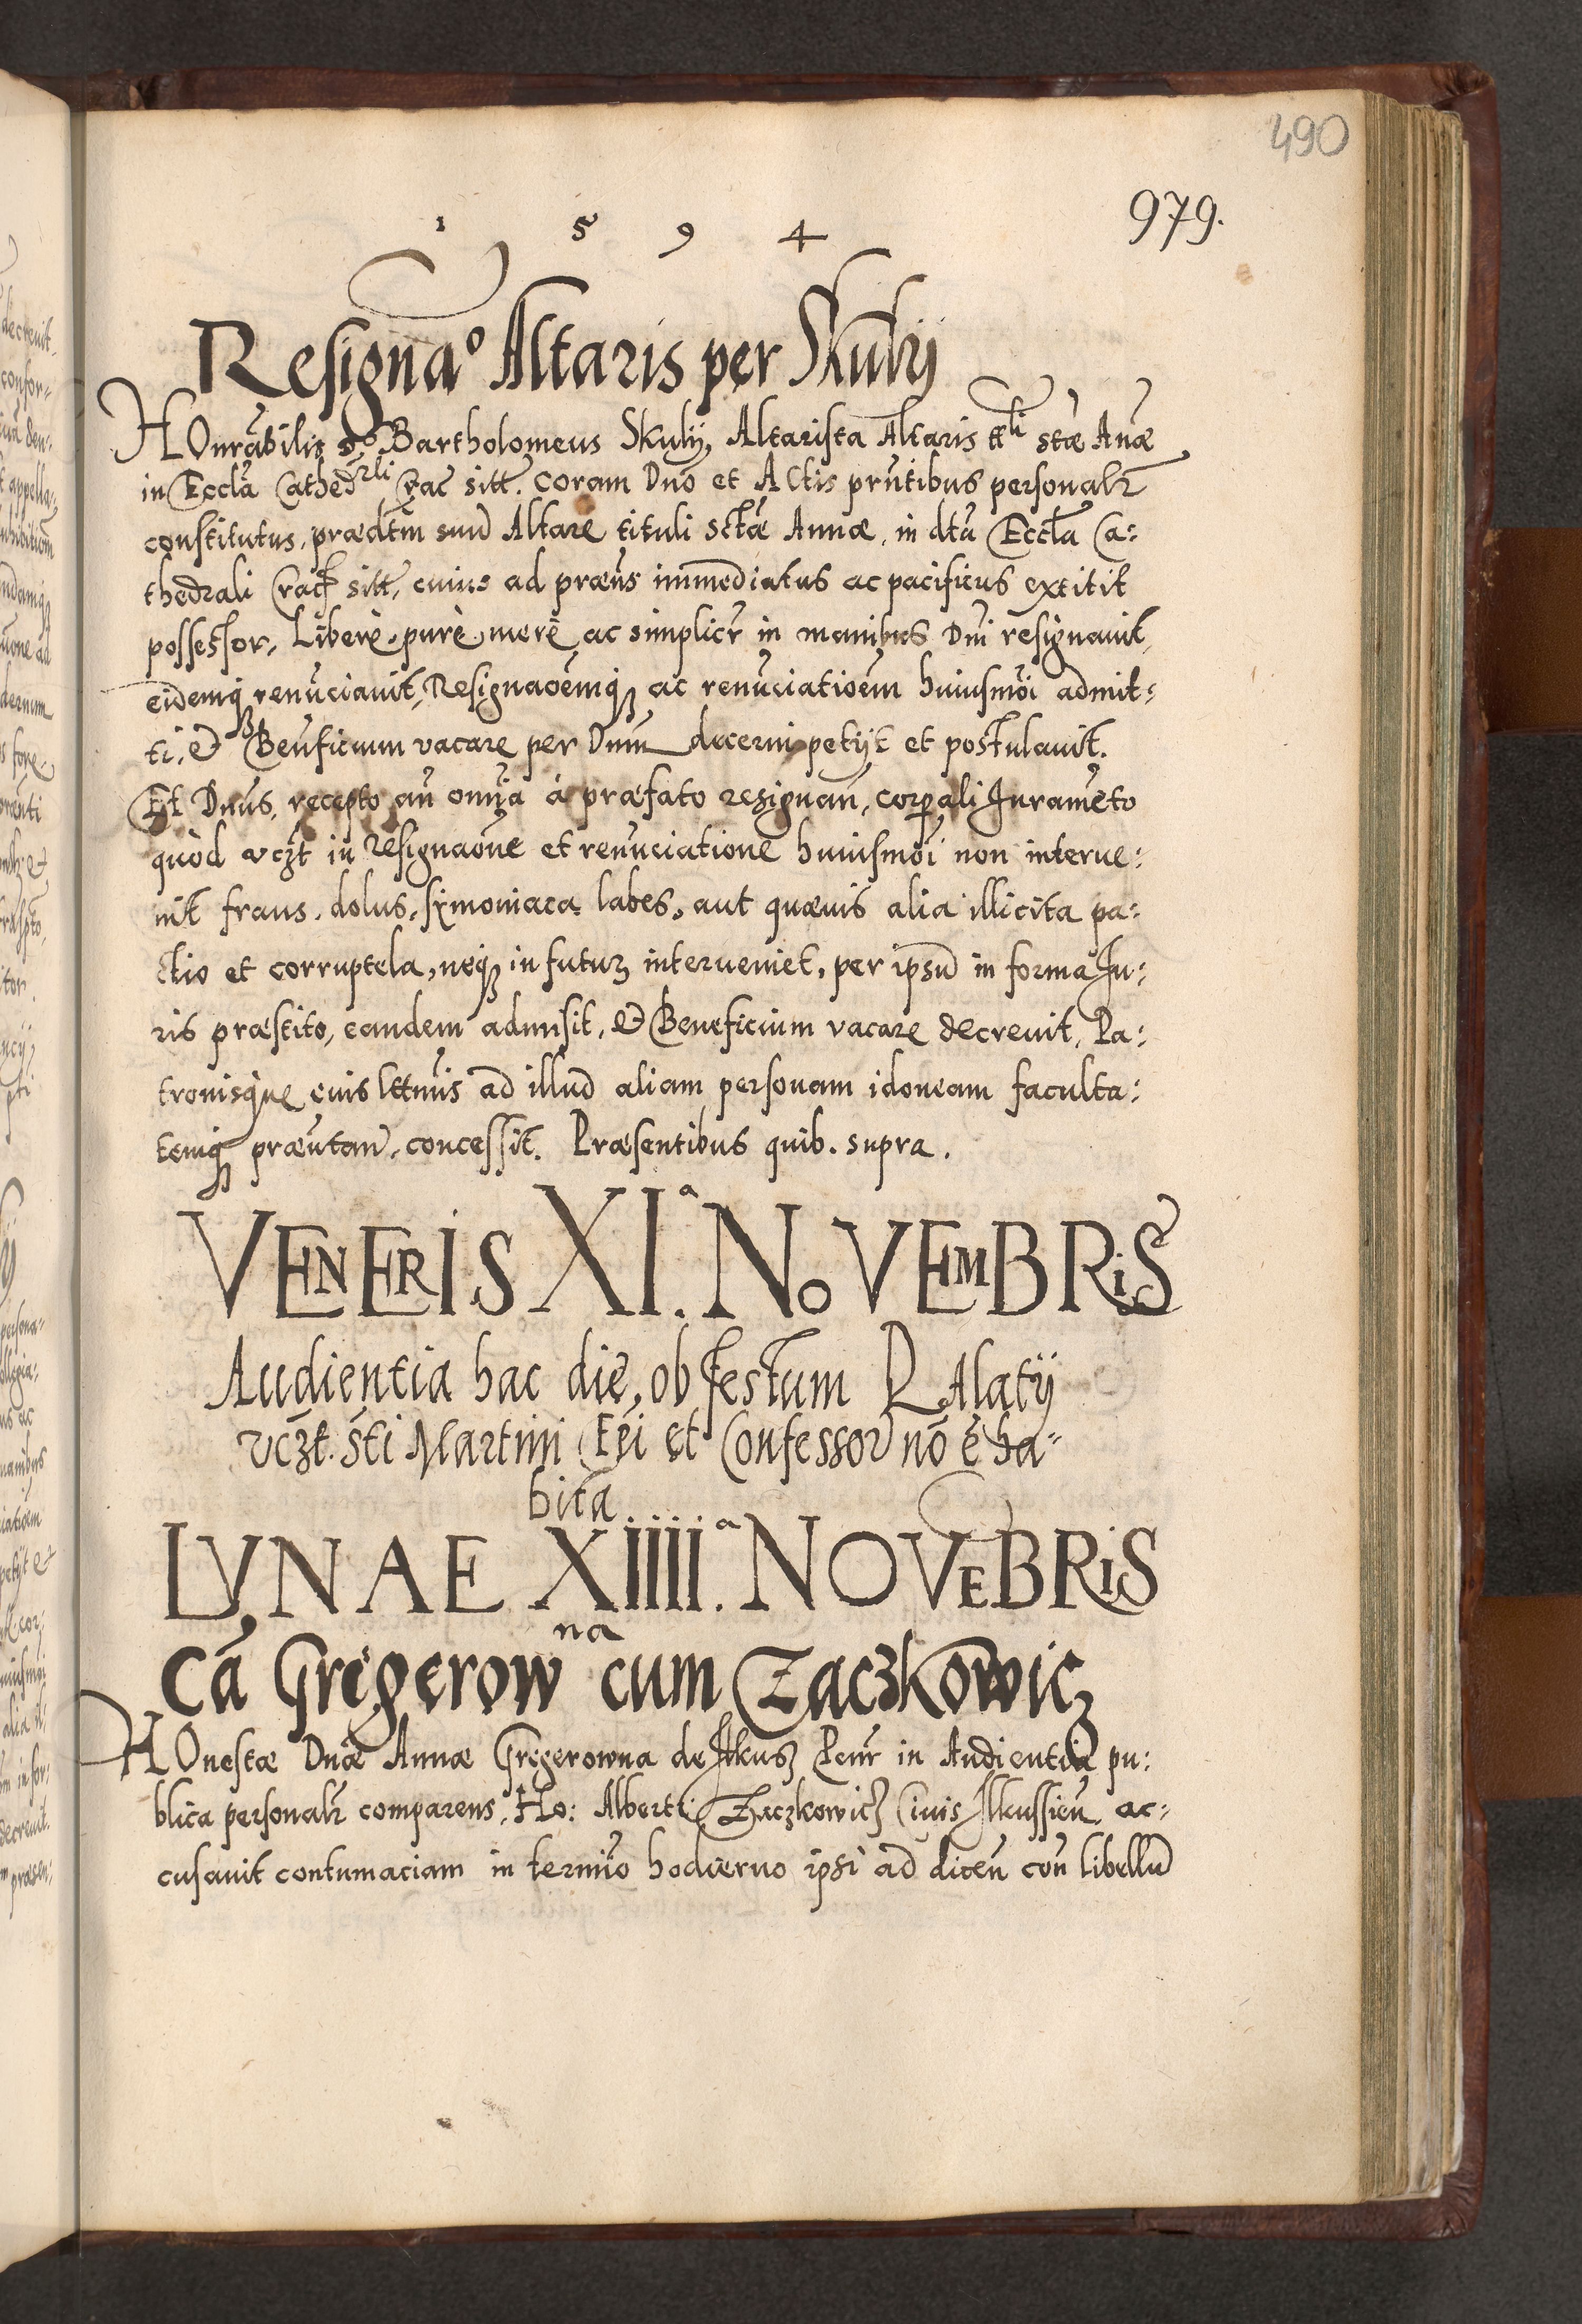 490
979.
1 5 9 4
Resigna⁰ Altaris per Skulij
HOnrabilis d⁰ Bartholomeus Skulij, Altarista Altaris ttli stæ Anæ
in Eccla Cathedrli Crac sitt. coram Dno et Actis prntibus personalr
constitutus, prædtm suu Altare tituli sctæ Annæ, in dta Eccla Ca:
thedrali Crac sitt, cuius ad præns immediatus ac pacificus extitit
possessor, Liberè, purè, merè ac simplicr in manibus Dni resignauit,
eidemq renuciauit, Resignaoemq ac renuciatioem huiusmoi admit:
ti, et Benficium vacare per Dnm decerni petijt et postulauit.
Et Dnus, recepto an omnia à præfato resignan, corporali Iurameto
quòd vczt in resignaone et renuciatione huiusmoi non interue:
nit fraus, dolus, symoniaca labes, aut quæuis alia illicita pa:
ctio et corruptela, neq in futuru interueniet, per ipsu in forma Iu:
ris præstito, eandem admisit, et Beneficium vacare decreuit, Pa:
tronisque eius lttmis ad illud aliam personam idoneam faculta:
temq præntan, concessit. Præsentibus quib. supra.
VENERIS XI.ª NOVEMBRIS
Audientia hac die, ob festum Palatij
vczt. Sti Martini Epi et Confessor no e ha-
bita
LVNAE XIIII.ª NOVEBRIS
Ca Gregerowna cum Zaczkowicz
HOnestæ Dnæ Annæ Gregerowna de Ilkusz Penr in Audientia pu:
blica personalr comparens, Ho: Alberti Zaczkowicz Ciuis Ilkussien, ac:
cusauit contumaciam in termio hodierno ipsi ad dicen con libellu